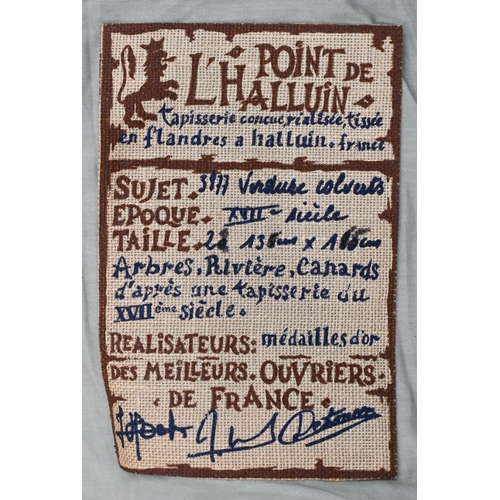 POINT DE
L'HALLUIN.
tapisserie conçue, réalisée, tissée
en flandres a halluin. france
SUJET. 3977 Verdure colverts
EPOQUE. XVIIe siècle
TAILLE. 13 cms x 1 cms
Arbres, Rivière, Canards
d'après une tapisserie du
XVIIème siècle.
REALISATEURS: médailles d'or
DES MEILLEURS. OUVRIERS.
. DE FRANCE.